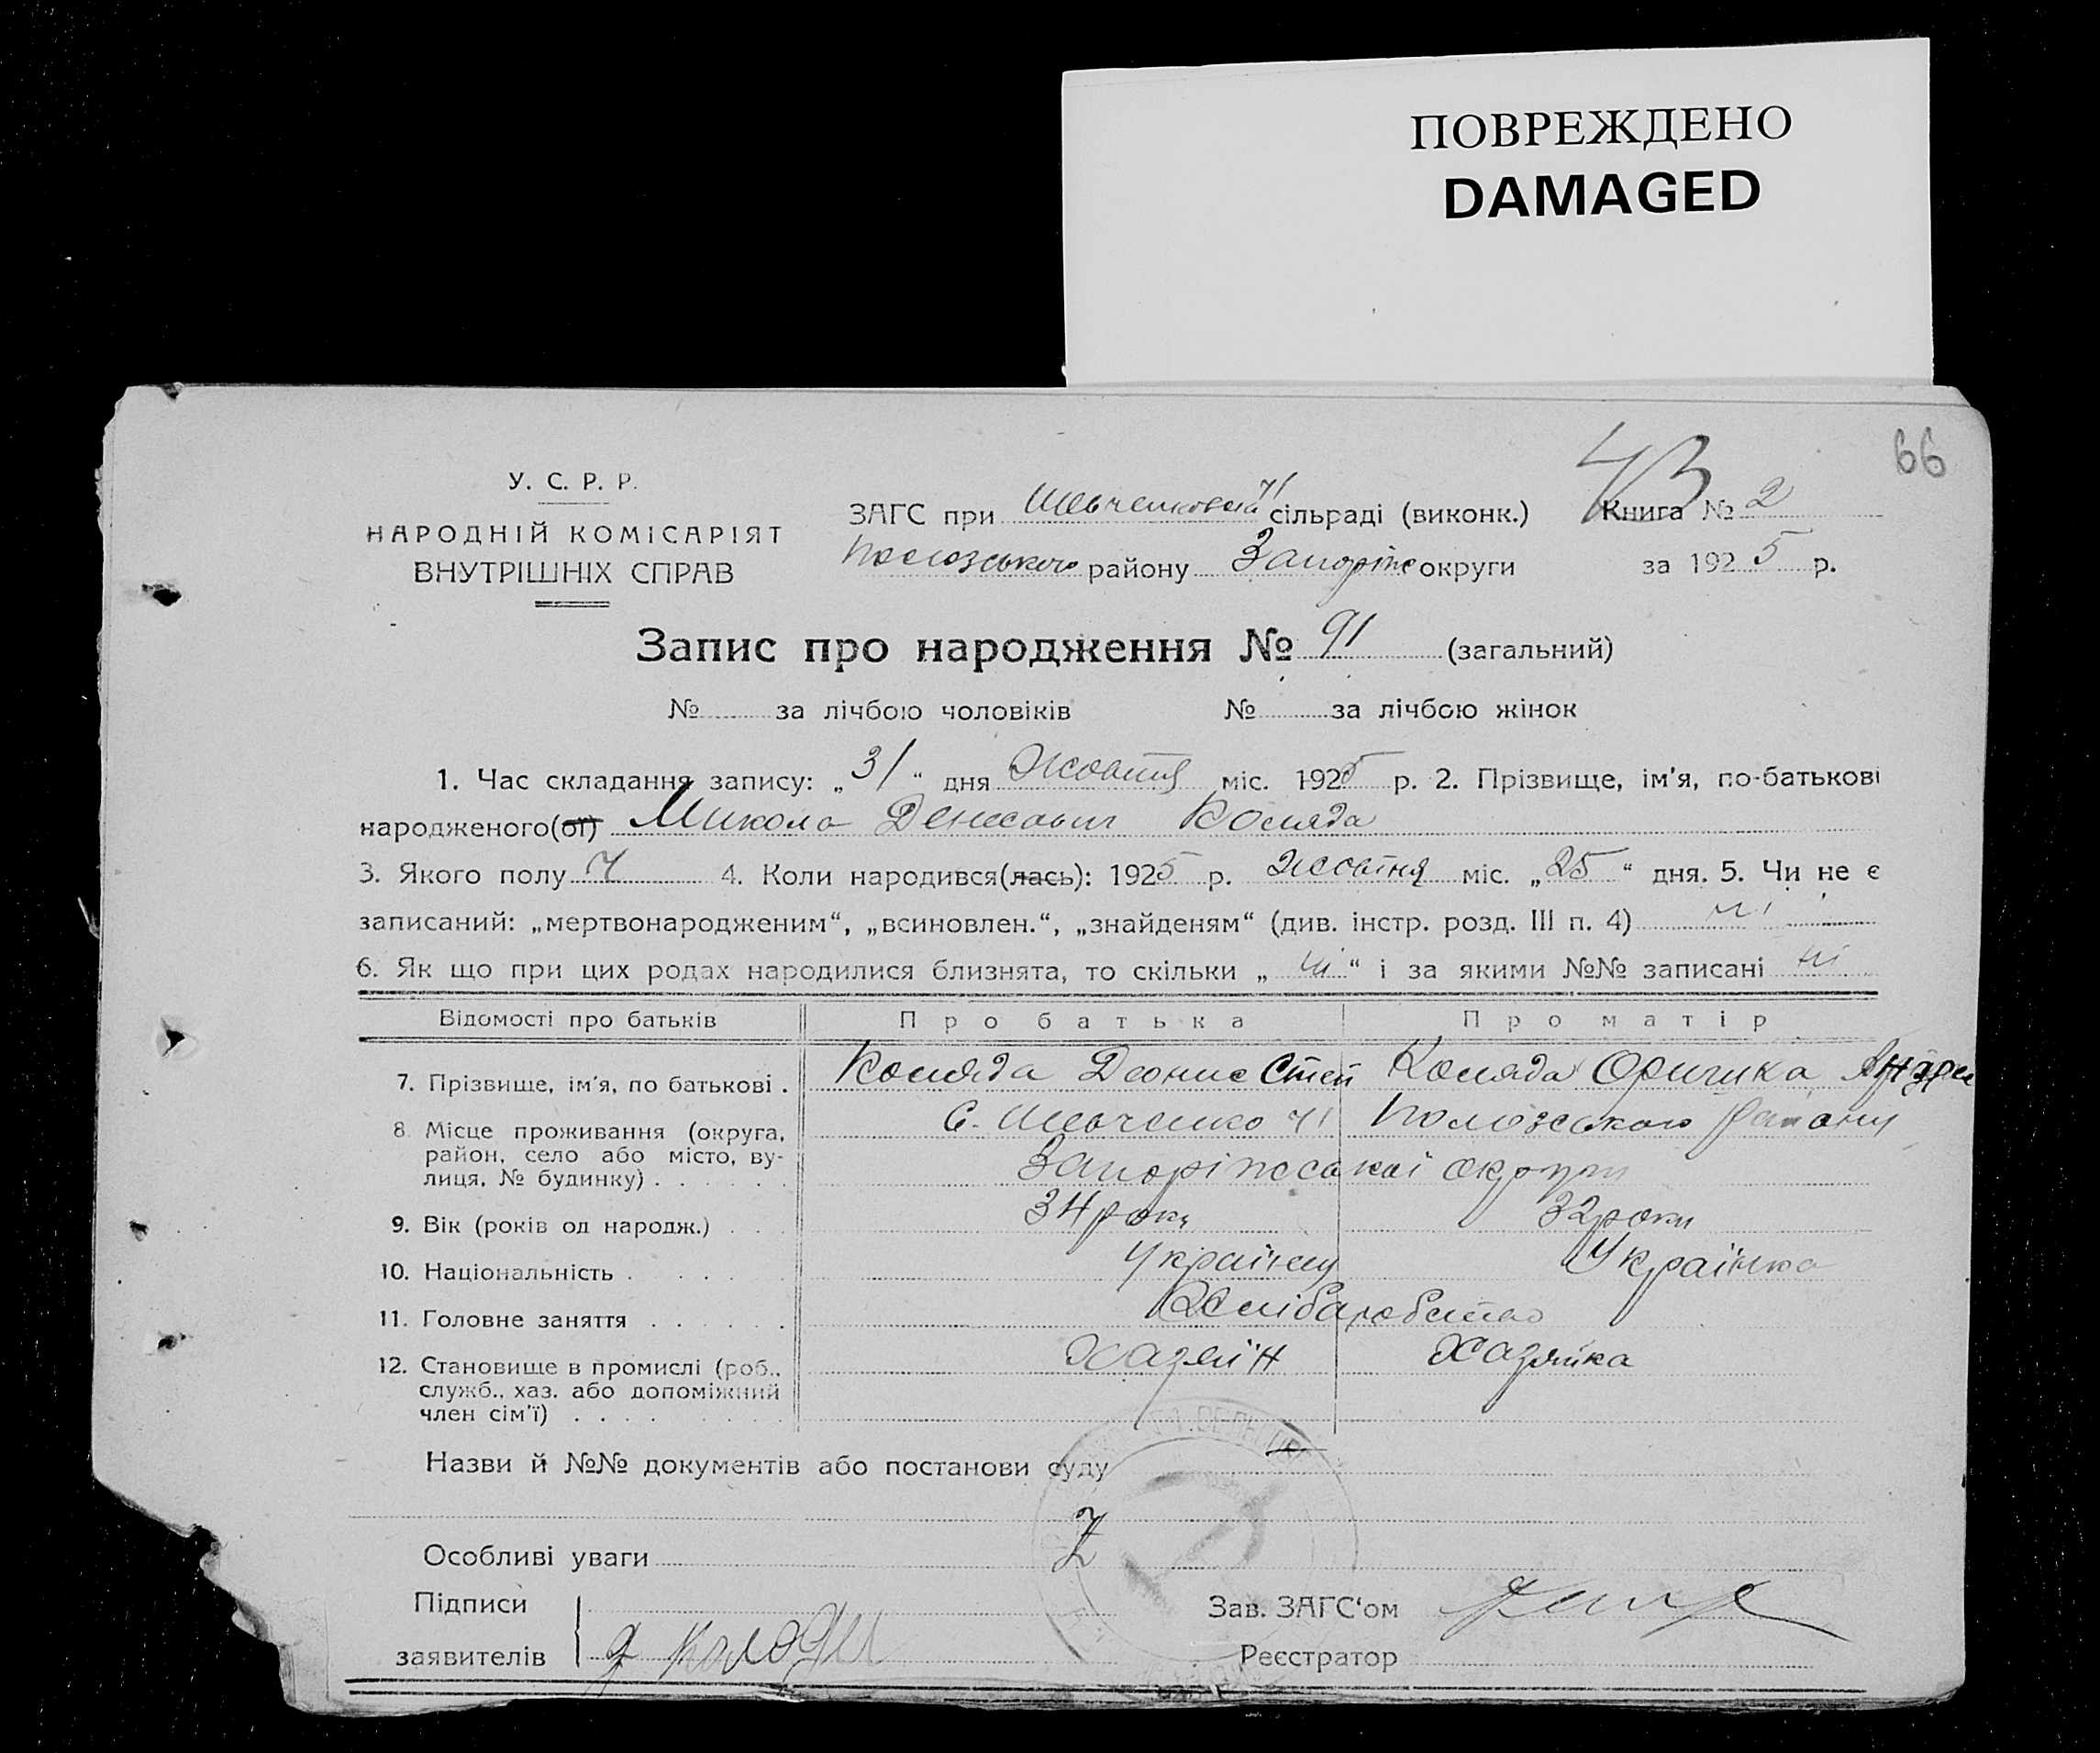 ПОВРЕЖДЕНО
DAMAGED
66
43
У. С. Р. Р.
НАРОДНІЙ КОМІСАРІЯТ
ВНУТРІШНІХ СПРАВ
ЗАГС при Шевченковскій ЧІ сільраді (виконк.) Книга № 2
Пологського району Запоріж округи за 1925 р.
Запис про народження № 91 (загальний)
№ за лічбою чоловіків № за лічбою жінок
1. Час складання запису: „31“ дня Жовтня міс. 1925 р. 2. Прізвище, ім’я, по-батькові
народженого(ої) Микола Денисович Коляда
3. Якого полу Ч 4. Коли народився(лась): 1925 р. Жовтня міс. „25“ дня. 5. Чи не є
записаний: „мертвонародженим“, „всиновлен.“, „знайденям“ (див. інстр. розд. III п. 4) ні
6. Як що при цих родах народилися близнята, то скільки „ні“ і за якими №№ записані ні
Відомості про батьків Про батька Про матір
7. Прізвище, ім’я, по батькові . Коляда Деонис Степ Коляда Оришка Андре
8. Місце проживання (округа, С. Шевченко ЧІ Пологського району
район, село або місто, ву-
лиця, № будинку) . . . . . . Запоріжської округи
9. Вік (років од народж.) . . 34 роки 32 роки
10. Національність . . . . . Українец Українка
11. Головне заняття . . . . . . Хліборобство
12. Становище в промислі (роб., Хазяїн Хазяйка
служб., хаз. або допоміжний
член сім’ї) . . . .
Назви й №№ документів або постанови суду
Особливі уваги
Підписи
Зав. ЗАГС‘ом
заявителів Д Коляда
Реєстратор